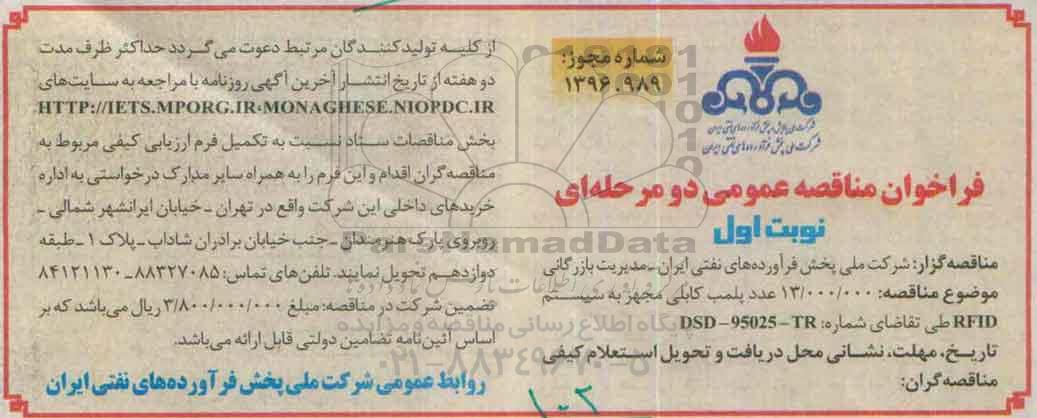 شماره مجوز:
۱۳۹۶.۹۸۹
شرکت ملی پالایش و پخش فرآورده‌های نفتی ایران
شرکت ملی پخش فرآورده‌های نفتی ایران
فراخوان مناقصه عمومی دو مرحله‌ای
نوبت اول
مناقصه‌گزار: شرکت ملی پخش فرآورده‌های نفتی ایران ـ مدیریت بازرگانی
موضوع مناقصه: ۱۳/۰۰۰/۰۰۰ عدد پلمب کابلی مجهز به سیستم
RFID طی تقاضای شماره: DSD – 95025 – TR
تاریخ، مهلت، نشانی محل دریافت و تحویل استعلام کیفی
مناقصه‌گران:
از کلیه تولیدکنندگان مرتبط دعوت می‌گردد حداکثر ظرف مدت
دو هفته از تاریخ انتشار آخرین آگهی روزنامه با مراجعه به سایت‌های
HTTP://IETS.MPORG.IR،MONAGHESE.NIOPDC.IR
بخش مناقصات ستاد نسبت به تکمیل فرم ارزیابی کیفی مربوط به
مناقصه‌گران اقدام و این فرم را به همراه سایر مدارک درخواستی به اداره
خریدهای داخلی این شرکت واقع در تهران ـ خیابان ایرانشهر شمالی ـ
روبروی پارک هنرمندان ـ جنب خیابان برادران شاداب ـ پلاک ۱ ـ طبقه
دوازدهم تحویل نمایند. تلفن‌های تماس: ۸۸۳۲۷۰۸۵ ـ ۸۴۱۲۱۱۳۰
تضمین شرکت در مناقصه: مبلغ ۳/۸۰۰/۰۰۰/۰۰۰ ریال می‌باشد که بر
اساس آئین‌نامه تضامین دولتی قابل ارائه می‌باشد.
روابط عمومی شرکت ملی پخش فرآورده‌های نفتی ایران
ParsNamadData
پایگاه اطلاع رسانی مناقصه و مزایده
۰۲۱-۸۸۳۴۹۶۷۰-۵
۱۰۳